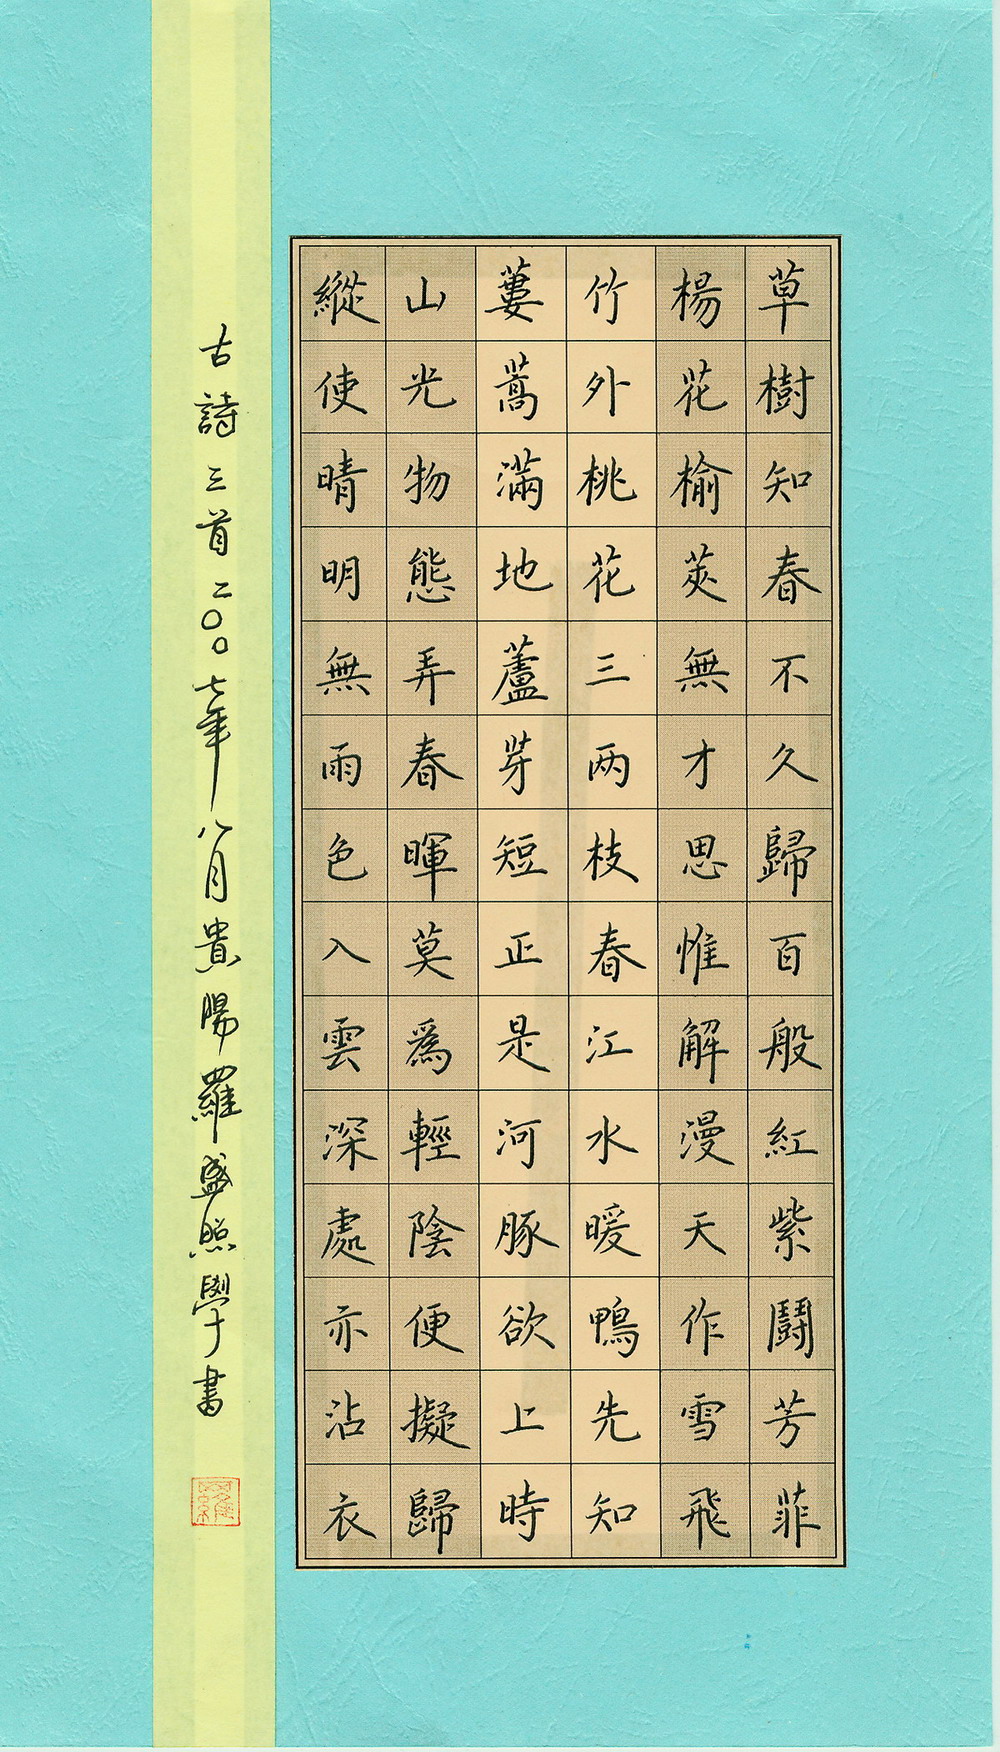 草樹知春不久歸百般紅紫鬪芳菲
楊花榆莢無才思惟解漫天作雪飛
竹外桃花三两枝春江水暖鴨先知
蔞蒿滿地蘆芽短正是河豚欲上時
山光物態弄春暉莫爲輕陰便擬歸
縱使晴明無雨色入雲深處亦沾衣
古詩三首二〇〇七年八月貴陽羅盛照學書
羅